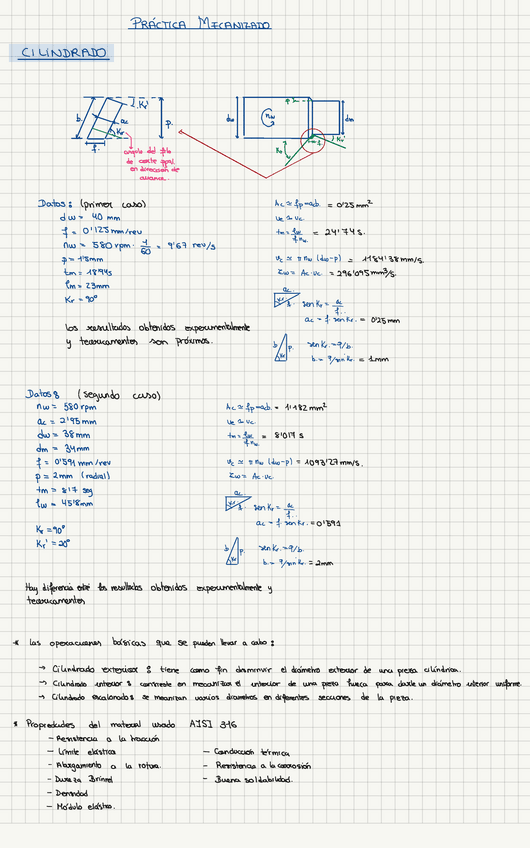 PRÁCTICA MECANIZADO
CILINDRADO
b
Kr'
ac
Kr
f
p
ángulo del filo
de corte ppal
en dirección de
avance.
dw
nw
p
dm
Kr'
Kr
Datos: (primer caso)
dw = 40 mm
f = 0'125 mm/rev
nw = 580 rpm · 1/60 = 9'67 rev/s
p =
tm = 18'94s
lm = 23mm
Kr = 90º
los resultados obtenidos experimentalmente
y teóricamente son próximos.
Ac ≈ fp = acb = 0'25 mm²
ve ≈ vc
tm = lw/f nw = 24'74 s.
vc ≈ π nw (dw-p) = 1184'38 mm/s.
zw = Ac·vc = 296'095 mm³/s.
ac
Kr
f
sen Kr = ac/f
ac = f · sen Kr = 0'25 mm
b
p
Kr
sen Kr = p/b
b = p/sin Kr = 1mm
Datos: (segundo caso)
nw = 580 rpm
ac = 2'95 mm
dw = 38 mm
dm = 34 mm
f = 0'591 mm/rev
p = 2mm (radial)
tm = 8'17 seg
lw = 45'8 mm
Kr = 90º
Kr' = 20º
Ac ≈ fp = acb = 1'182 mm²
ve ≈ vc
tm = lw/f nw = 8'017 s
vc ≈ π nw (dw-p) = 1093'27 mm/s.
zw = Ac·vc
ac
Kr
f
sen Kr = ac/f
ac = f · sen Kr = 0'591
b
p
Kr
sen Kr = p/b
b = p/sin Kr = 2mm
Hay diferencia entre los resultados obtenidos experimentalmente y
teóricamente
* Las operaciones básicas que se pueden llevar a cabo:
→ Cilindrado exterior: tiene como fin disminuir el diámetro exterior de una pieza cilíndrica.
→ Cilindrado interior: consiste en mecanizar el interior de una pieza hueca para darle un diámetro interior uniforme.
→ Cilindrado escalonado: se mecanizan varios diámetros en diferentes secciones de la pieza.
* Propiedades del material usado AISI 316
- Resistencia a la tracción
- Límite elástico
- Alargamiento a la rotura.
- Dureza Brinel
- Densidad
- Módulo elástico.
- Conducción térmica
- Resistencia a la corrosión
- Buena soldabilidad.